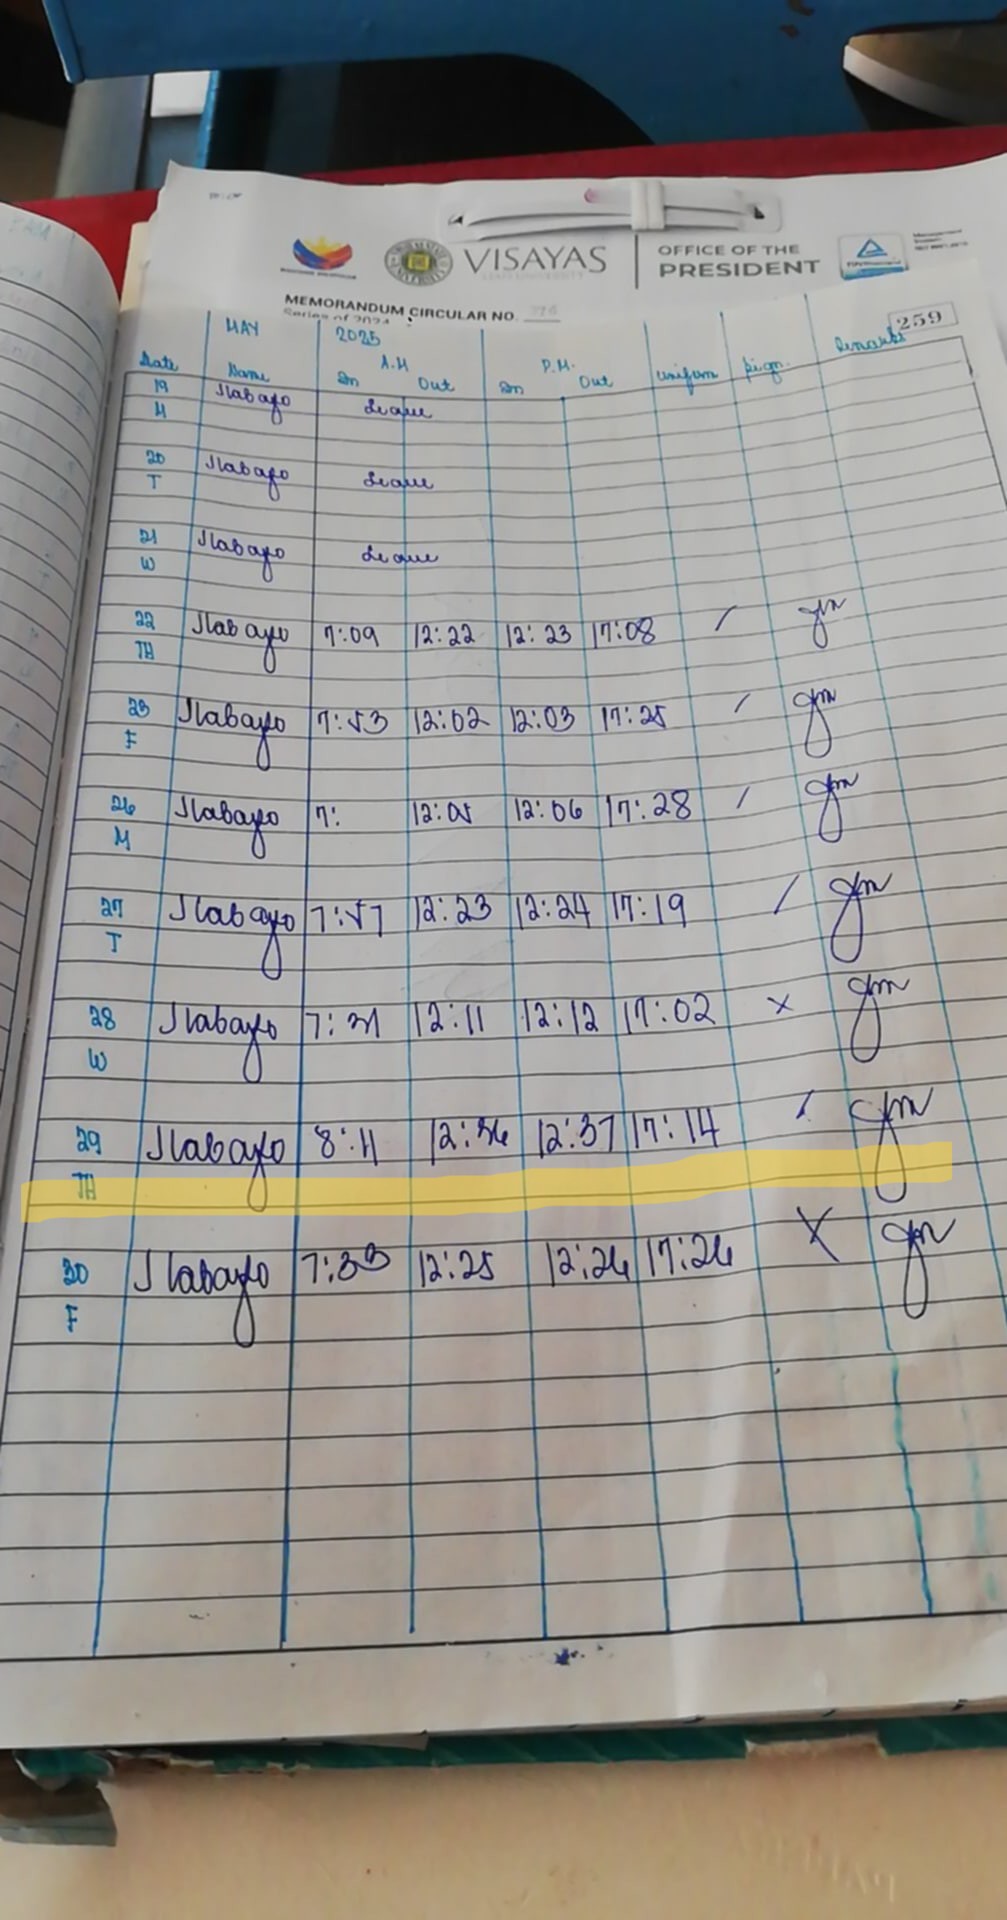 VISAYAS
OFFICE OF THE
PRESIDENT
MEMORANDUM CIRCULAR NO.
Series of 2024
259
MAY 2025
A.M P.M.
Date Name In Out In Out Uniform Sign. Remarks
19 Jlabayo Leave
M
20 Jlabayo Leave
T
21 Jlabayo Leave
W
22 Jlabayo 7:09 12:22 12:23 17:08 /
TH
23 Jlabayo 7:53 12:02 12:03 17:25 /
F
26 Jlabayo 7: 12:05 12:06 17:28 /
M
27 Jlabayo 7:57 12:23 12:24 17:19 /
T
28 Jlabayo 7:31 12:11 12:12 17:02 x
W
29 Jlabayo 8:11 12:36 12:37 17:14 /
TH
30 Jlabayo 7:33 12:25 12:26 17:26 X
F